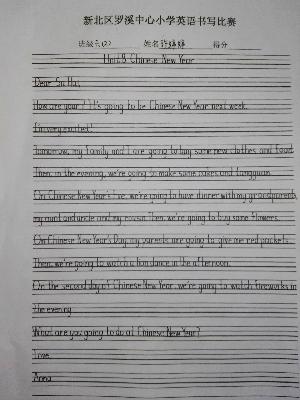 新北区罗溪中心小学英语书写比赛
班级六(2) 姓名 得分
Unit8 Chinese New Year
Dear Su Hai,
How are you? It's going to be Chinese New Year next week.
I'm very excited!
Tomorrow, my family and I are going to buy some new clothes and food.
Then in the evening, we're going to make some cakes and tangyuan.
On Chinese New Year's Eve, we're going to have dinner with my grandparents,
my aunt and uncle and my cousin. Then, we're going to buy some flowers.
On Chinese New Year's Day, my parents are going to give me red packets.
Then, we're going to watch a lion dance in the afternoon.
On the second day of Chinese New Year, we're going to watch fireworks in
the evening.
What are you going to do at Chinese New Year?
Love,
Anna